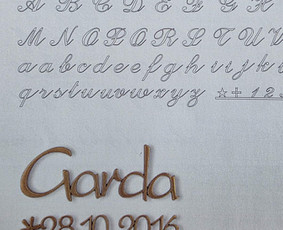 A B C D E F G H
M N O P Q R S T U V
a a b c d e e f g h i i j k
q r s t u u v w x y z ☆ ✝ 1 2 3
Garda
*28.10.2016